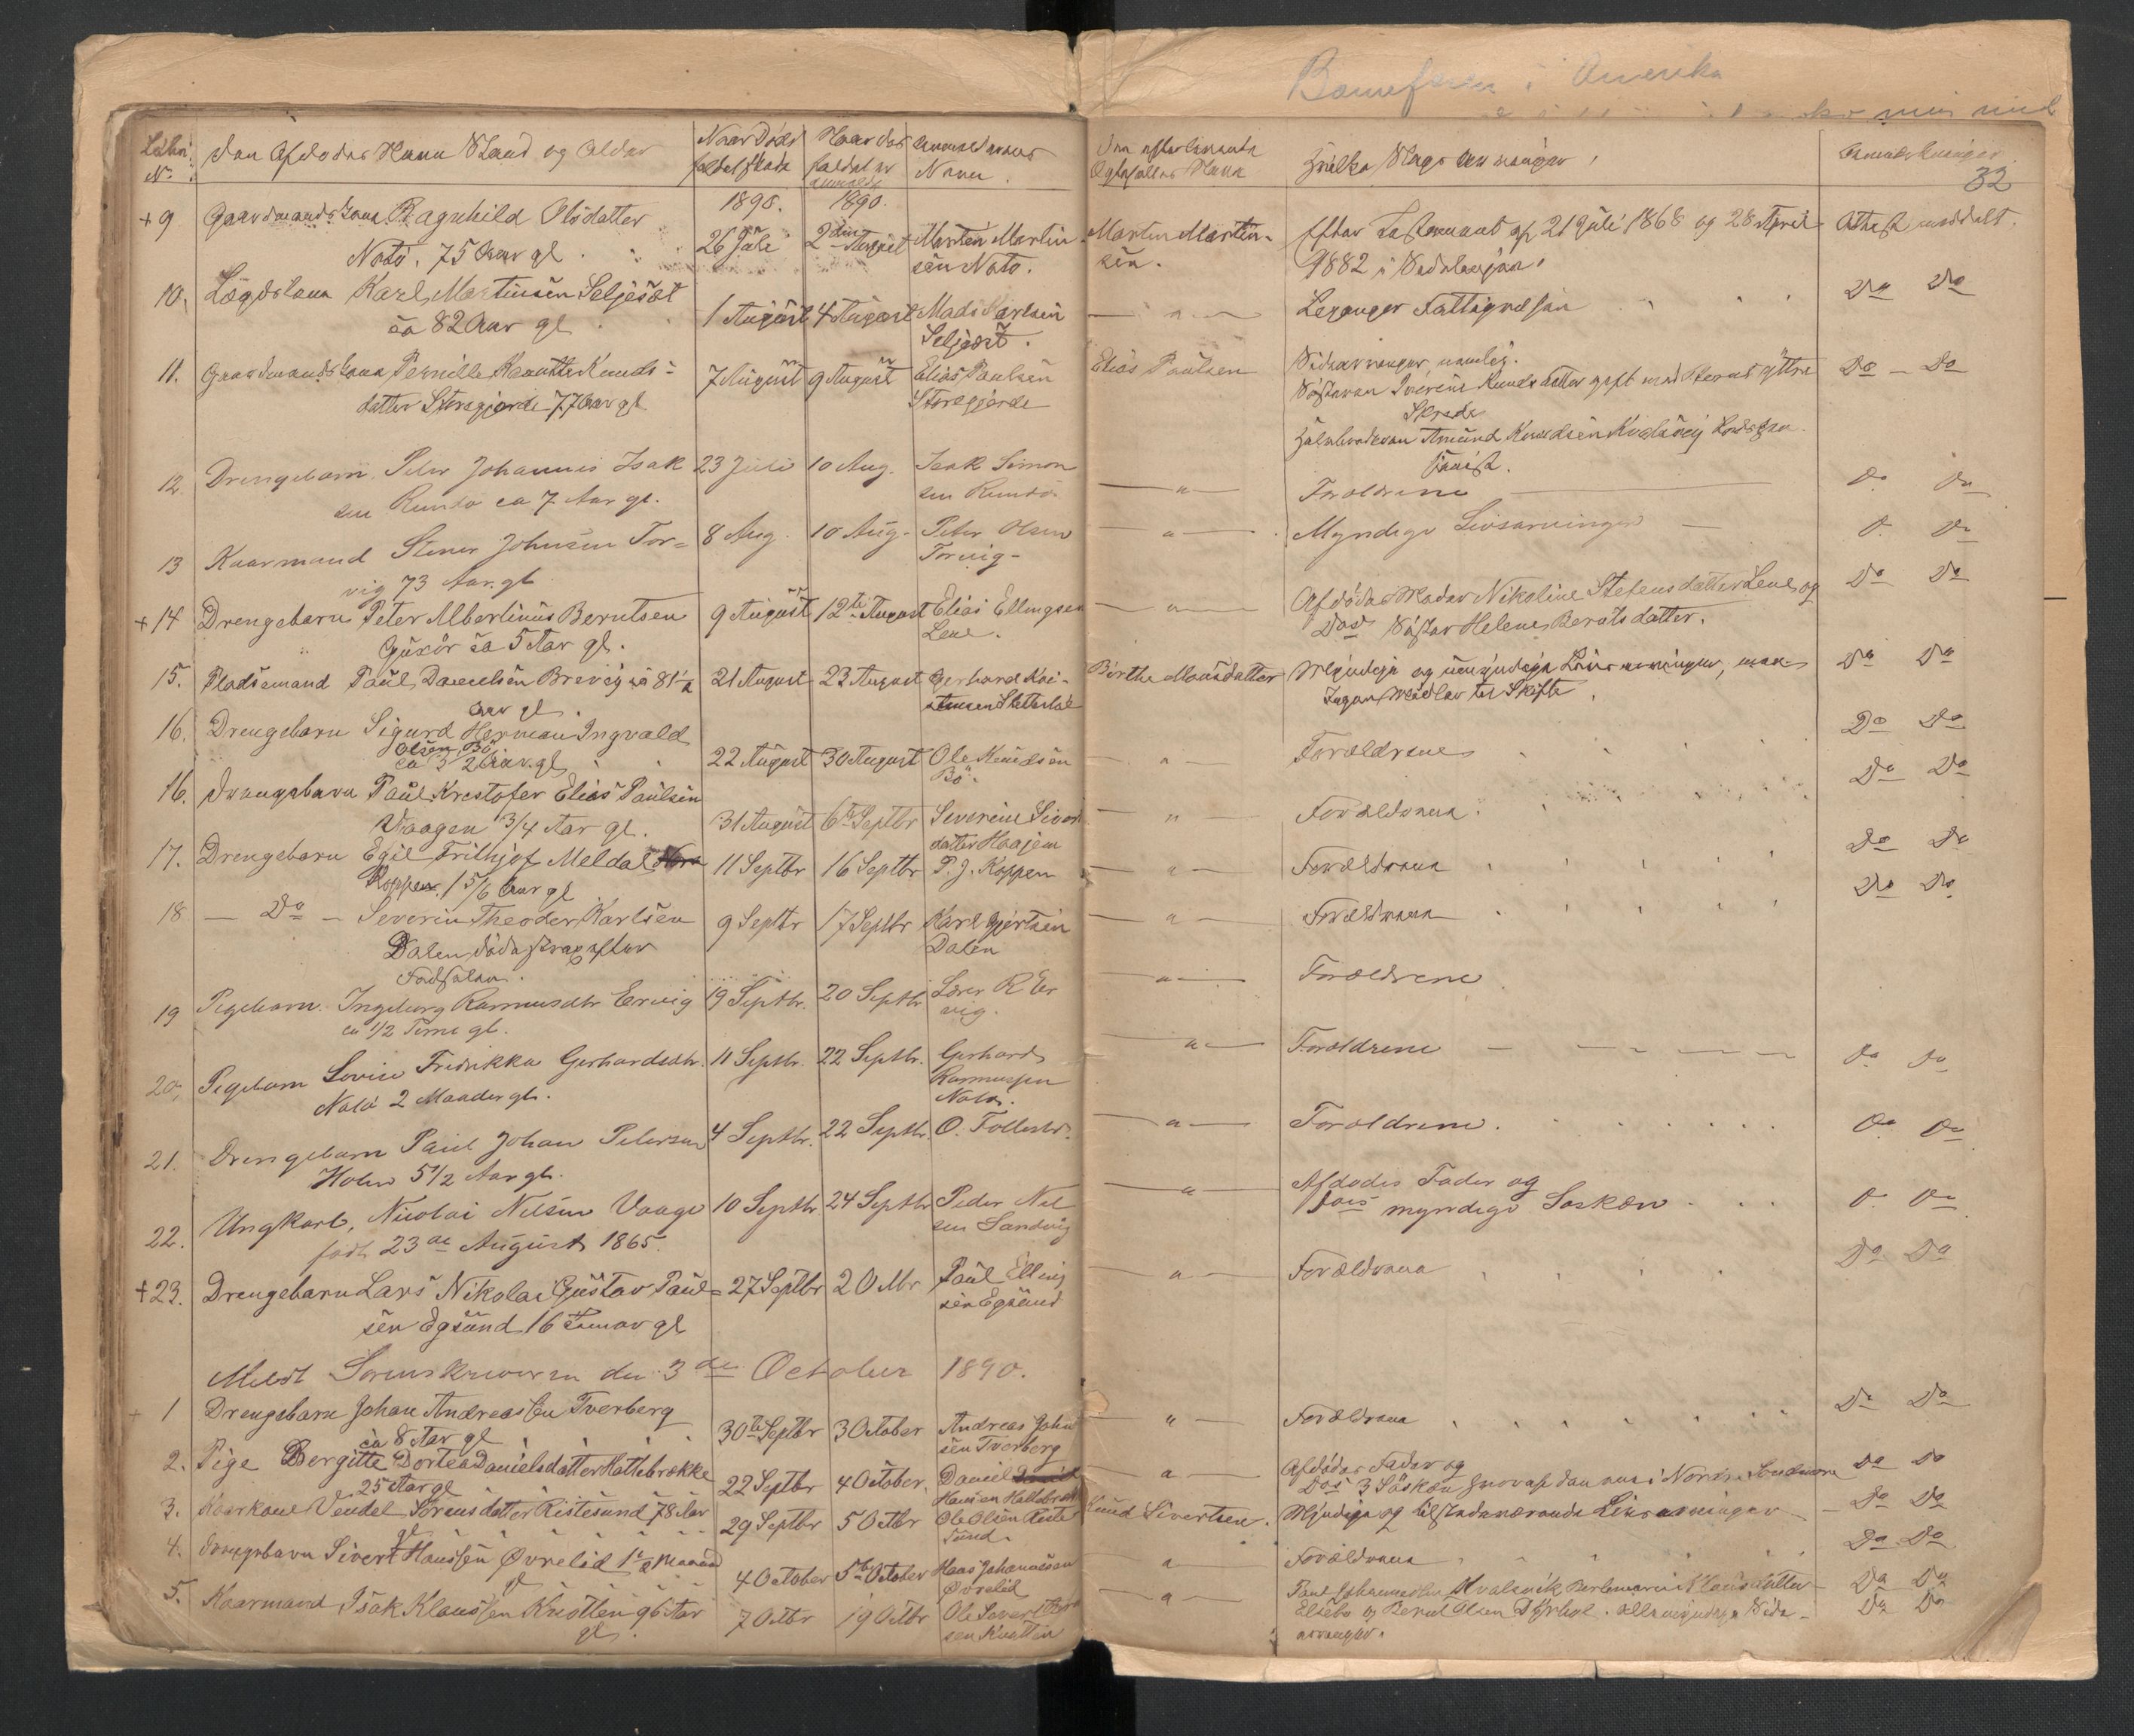 Børnefaren i Amerika
min
32
Løbe No.
Den Afdødes Navn Stand og Alder
Naar Dødsfaldet skede
Naar Dødsfaldet er anmeldt
Anmelderens Navn
Den efterlevende Ægtefælles Navn
Hvilke Slags Arvinger
Anmærkninger
1890. 1890.
+ 9 Gaardmands Kone Ragnhild Olsdatter
Natø. 75 Aar gl.
26 Juli
2den August
Morten Martin-
sen Natø.
Morten Martin-
sen.
Efter Testament af 21 Juli 1868 og 28 April
1882 i Vedalenjen.
Attest meddelt.
10. Lægdslem Karl Martinsen Seljeset
ca 82 Aar gl.
1 August
4 August
Mads Karlsen
Seljeset.
— " —
Leganger Fattigvæsen
Do Do
11. Gaardmands Kone Pernille Knutte Knuds-
datter Storegjerde 77 Aar gl.
7 August
9 August
Elias Paulsen
Storegjerde
Elias Paulsen
Sidearvinger, nemlig.
Søsteren Iverine Knudsdatter gift med Bernt Yttre
Skrede
Halvbroderen Amund Knudsen
Do - Do
12. Drengebarn Peter Johannes Isak
sen Rundø ca 7 Aar gl.
23 Juli
10 Aug.
Isak Simon
sen Rundø
— " —
Forældrene
Do Do
13 Kaarmand Stener Johnsen Tor=
vig 73 Aar gl.
8 Aug.
10 Aug.
Peter Olsen
Torvig-
— " —
Myndige Livsarvinger
Do Do
+ 14 Drengebarn Peter Albertinus Berntsen
Gurskø ca 5 Aar gl.
9 August
12te August
Elias Ellingsen
Lene.
— " —
Afdødes Moder Nikoline Stefensdatter Lene og
Dos Søster Helene Berntsdatter.
Do Do
15. Pladsemand Paul Danielsen Brevig ca 81½
Aar gl.
21 August
23 August
Gerhard Kri-
stensen
Birthe Monsdatter
Myndige og umyndige Livsarvinger, man-
Do Do
16. Drengebarn Sigurd Herman Ingvald
Olsen Bø
ca 3½ Aar gl.
22 August
30 August
Ole Knudsen
Bø.
— " —
Forældrene
Do Do
16. Drengebarn Paul Krestofer Elias Paulsen
Vaagen 3/4 Aar gl.
31 August
6te Septbr
Severine Sivert
datter Haajem
— " —
Forældrene.
Do Do
17. Drengebarn Egil Frithjof Meldal
Koppen 1 5/6 Aar gl
11 Septbr
16 Septbr
P. J. Koppen
— " —
Forældrene
Do Do
18 — Do — Severin Theodor Karlsen
Dalen døde strax efter
Fødselen.
9 Septbr
17 Septbr
Karl Gjertsen
Dalen
— " —
Forældrene
Do Do
19 Pigebarn. Ingeborg Rasmusdtr Ervig
ca 1/2 Time gl.
19 Septbr.
20 Septbr
Lærer R Er
vig.
— " —
Forældrene
20, Pigebarn Lovise Fredrikka Gerhardsdtr.
Natø 2 Maaneder gl.
11 Septbr.
22 Septbr.
Gerhard
Rasmussen
Natø.
— " —
Forældrene
Do Do
21. Drengebarn Paul Johan Petersen
Holen 5 1/2 Aar gl.
4 Septbr.
22 Septbr.
O. Follestø.
— " —
Forældrene.
Do Do
22. Ungkarl, Nicolai Nilsen Vaage
født 23de August 1865.
10 Septbr
24 Septbr
Peder Nil
sen Sandvig
— " —
Afdødes Fader og
Dos myndige Søsken
Do Do
+ 23. Drengebarn Lars Nikolai Gustav Paul=
sen Egsund 16 Timer gl
27 Septbr
2 Octbr
Paul Elling
sen Egsund
— " —
Forældrene
Do Do
Meldt Sorenskriveren den 3de October 1890.
+ 1 Drengebarn Johan Andreassen Tverberg
ca 8 Aar gl
30te Septbr
3 October
Andreas John
sen Tverberg
" —
Forældrene
Do Do
2. Pige Bergitte Dortea Danielsdatter Hattebrække
25 Aar gl
22 Septbr
4 October.
Daniel
Hansen Hattebræk
— " —
Afdødes Fader og
Dos 3 Søsken hvoraf den ene i Nordre Søndmøre
Do Do
3. Kaarkone Vendel Sørensdatter Ristesund 78 Aar
gl
29 Septbr
5 Octbr
Ole Olsen Riste
sund.
Knud Sivertsen.
Myndige og tilstedeværende Livsarvinger
Do Do
4. Drengebarn Sivert Hanssen Øvrelid 1½ Maaned
gl
4 October
5te October
Hans Johannessen
Øvrelid
— " —
Forældrene
Do Do
5. Kaarmand Isak Klaussen Knotten 96 Aar
gl.
7 Octbr
19 Octbr
Ole Sivert
sen Knotten
— " —
Paul Johannessen Kvalsvik Klausdatter
Elsebø og Bernt Olsen Dyrhol. alle myndige Side-
arvinger.
Do Do
Do Do